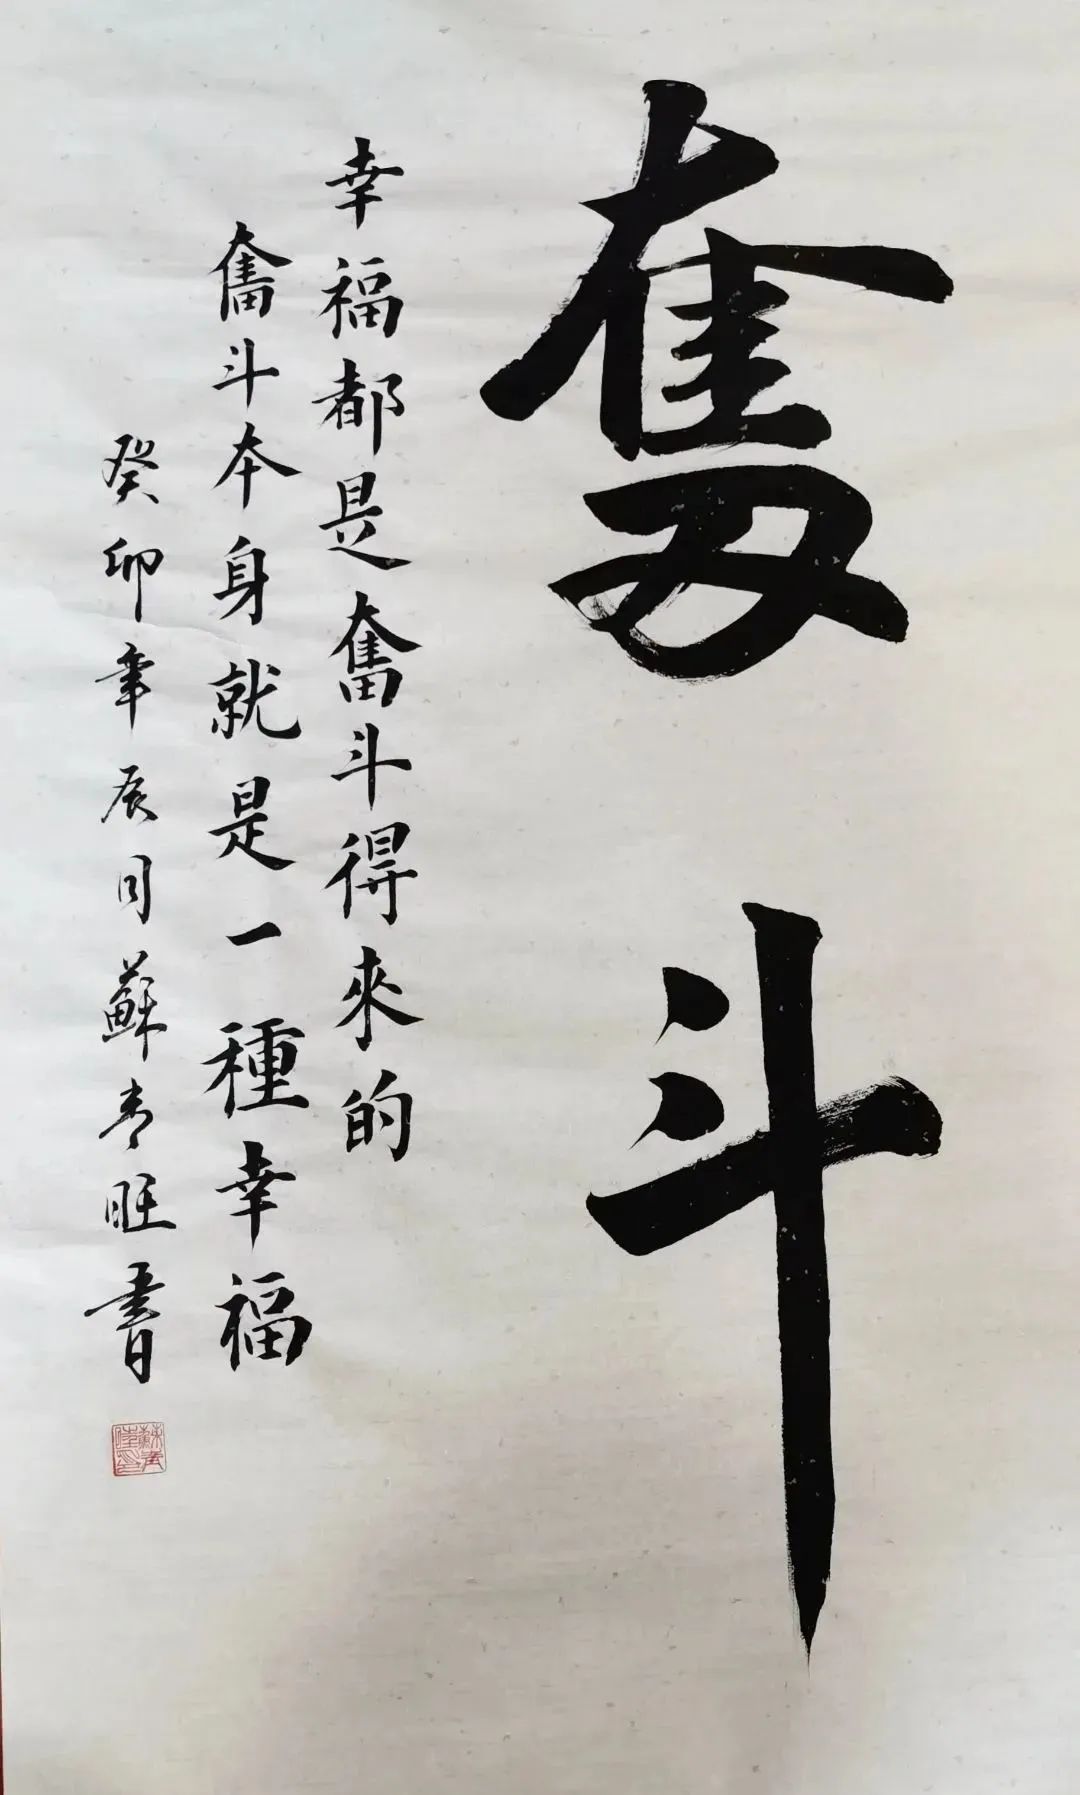 奮
斗
幸福都是奮斗得來的
奮斗本身就是一種幸福
癸卯年辰月蘇青旺書